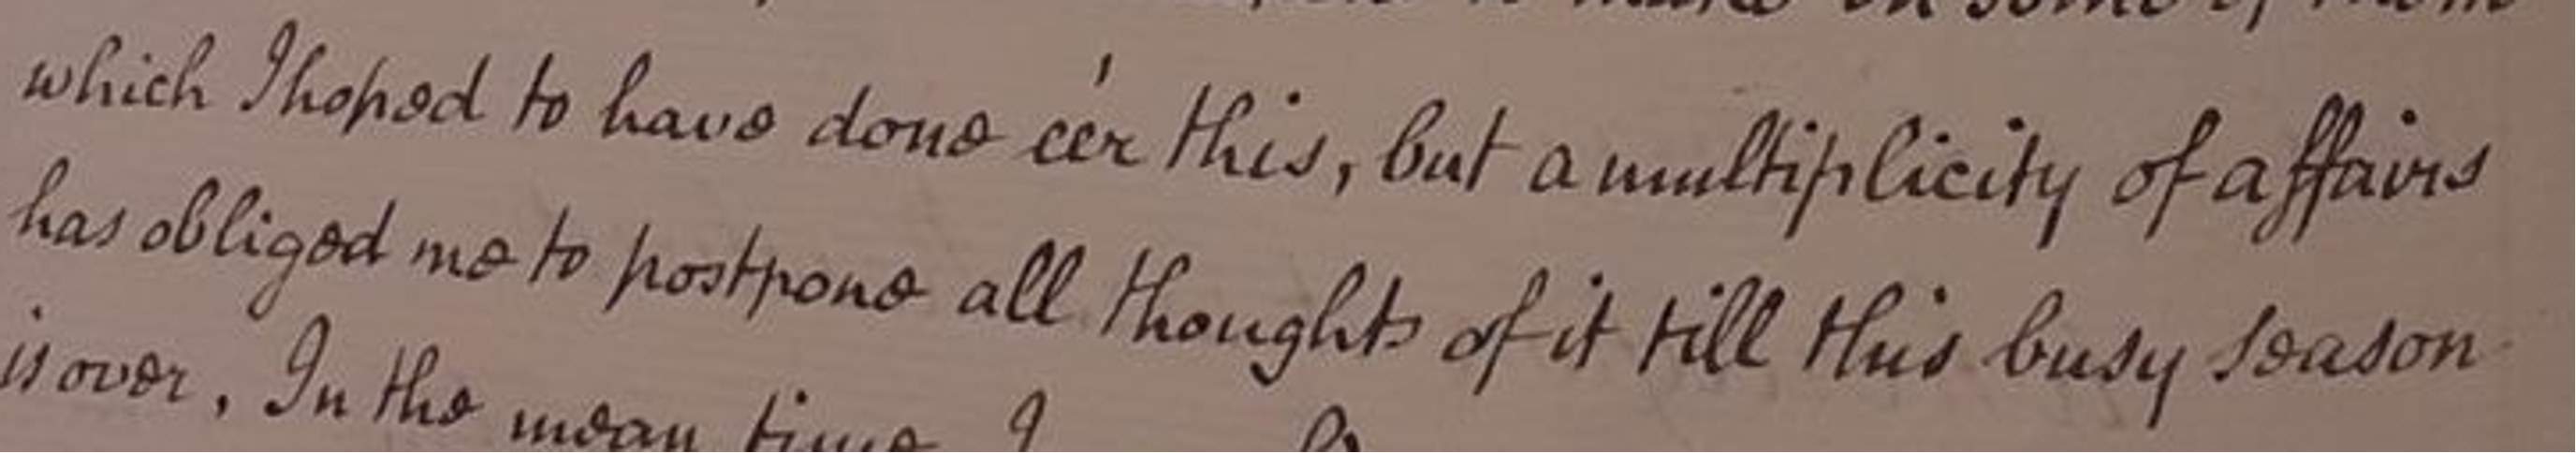 to make on some of them
which I hoped to have done e'er this, but a multiplicity of affairs
has obliged me to postpone all thoughts of it till this busy season
is over. In the mean time I